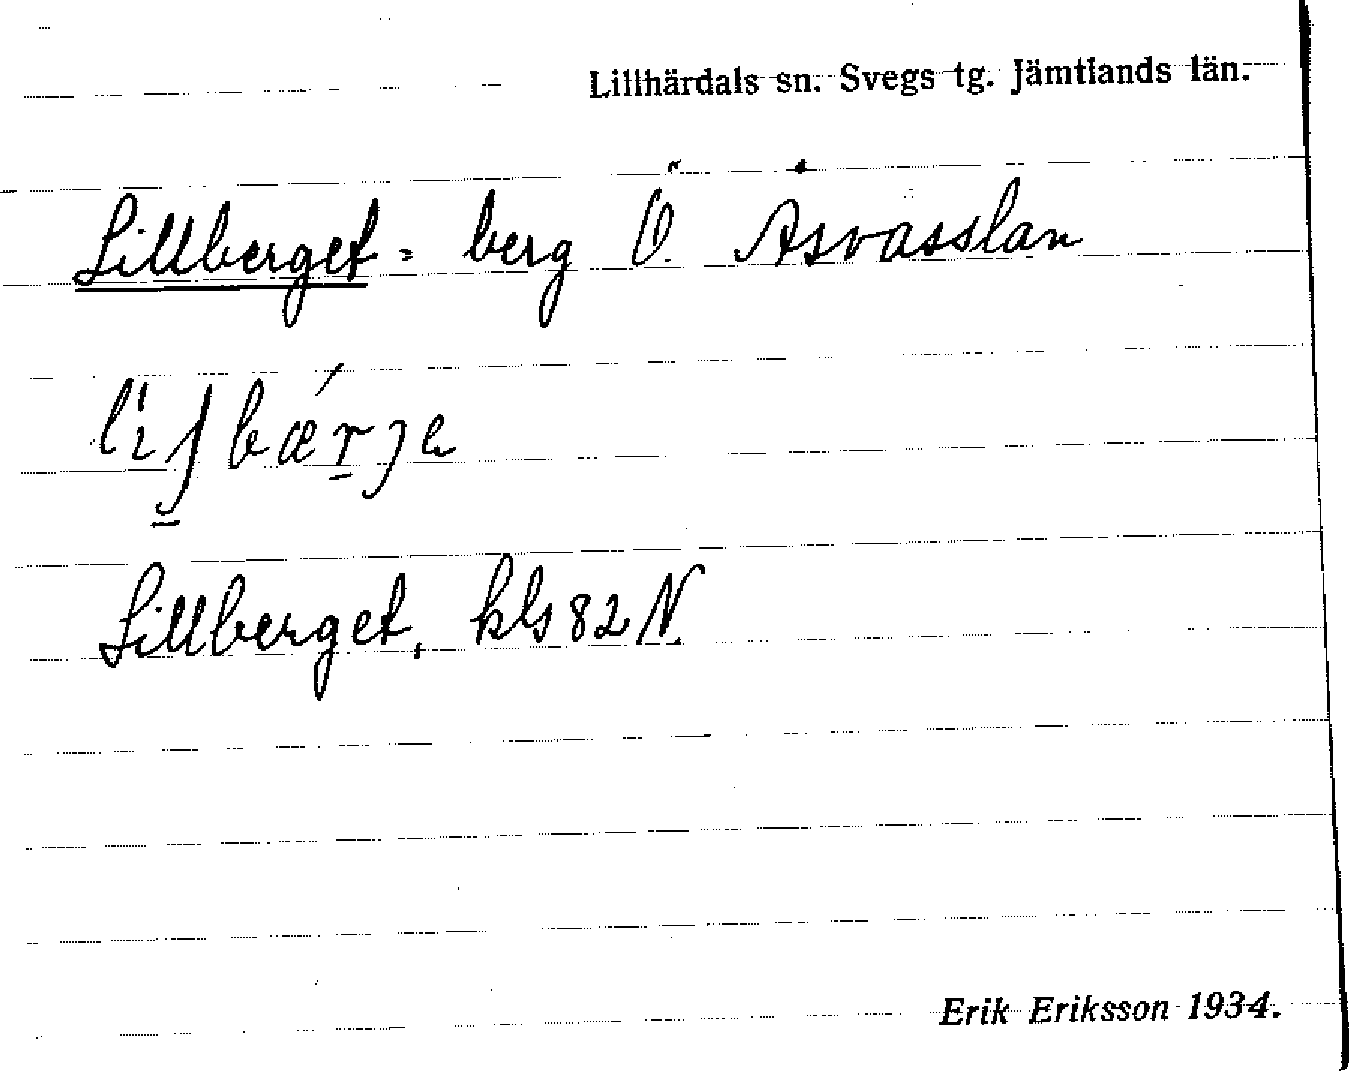 Lillhärdals sn. Svegs tg. Jämtlands län.
Lillberget = berg Ö. Åsvasslan
Lillberget, kls 82 N.
Erik Eriksson 1934.